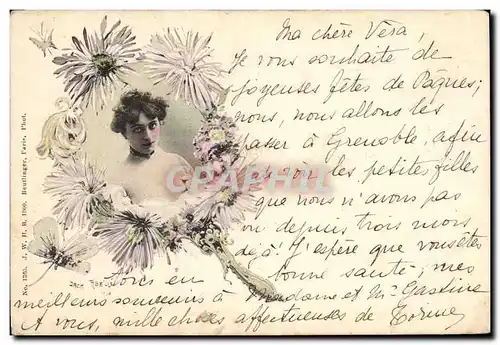 Ma chère Véra,
Je vous souhaite de
joyeuses fêtes de Paques;
nous, nous allons les
passer à Grenoble, afin
de voir les petites filles
que nous n'avons pas
vu depuis trois mois
déjà. J'espère que vous êtes
toirs en bonne santé; mes
meilleurs souvenirs à Madame et Mr Gastine
A vous, mille choses affectueuses de
No. 1295. J. W. H. B. 1900. Reutlinger, Paris, Phot.
CARTORUM